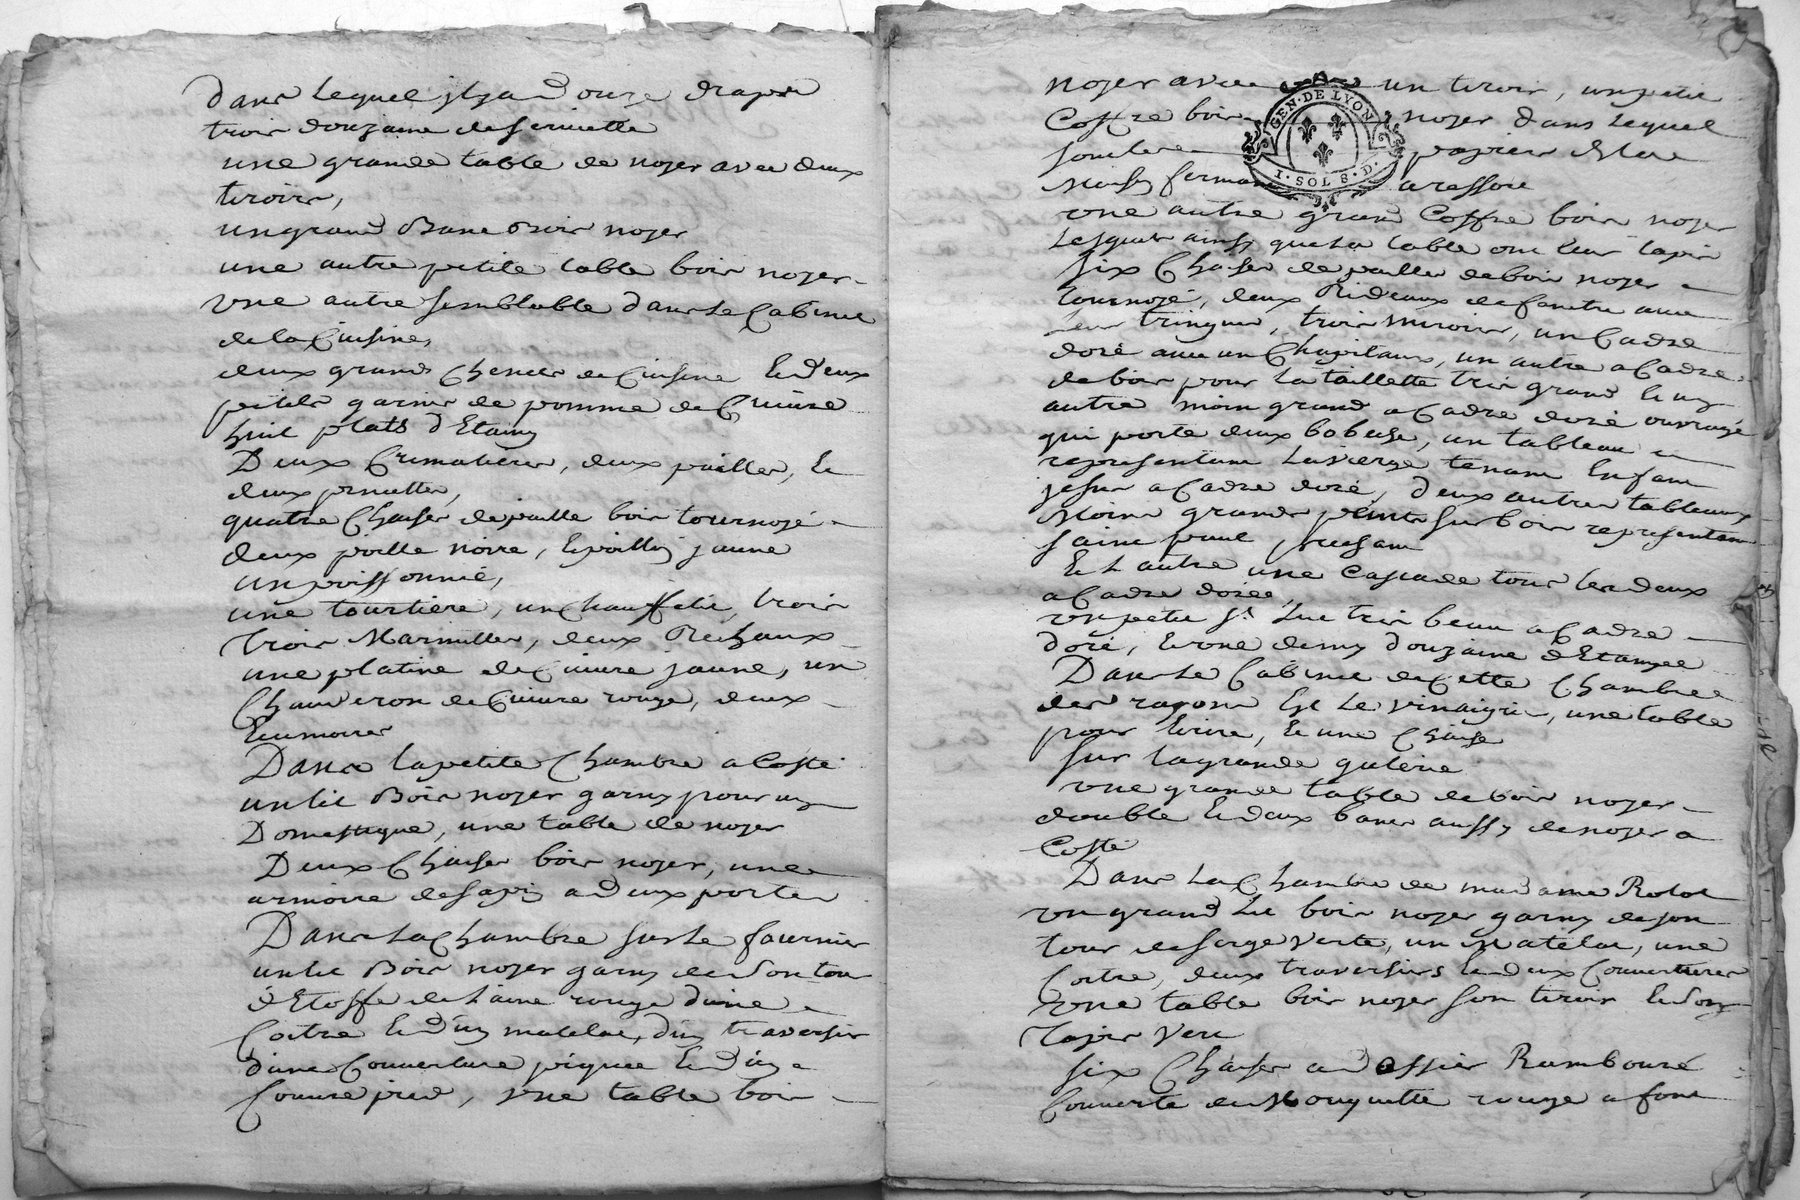 dans lequel jlya d onze drapts
trois douzaine de serviette
une grande table de noyer avec deux
tiroirs,
un grand Banc Bois noyer
une autre petite table bois noyer
vne autre semblable dans le Cabinet
de la Cuisine,
deux grands Chenets de Cuisine et deux
petits garnis de pomme de Cuivre
huit plats d'Etaing
Deux Cremalieres, deux poilles, et
deux
quatre Chaises de paille bois tournoyé
deux poille noire, et poillon jaune
un poissonnié,
une tourtiere, un Chauffelit, trois
trois Marmittes, deux Rechaux
une platine de Cuivre jaune, un
Chauderon de Cuivre rouge, deux
Ecumoires
Dans la petite Chambre a Costé
un lit Bois noyer garny pour un
Domestique, une table de noyer
Deux Chaises bois noyer, une
armoire de sapin a deux portes
Dans la Chambre sur le fournier
un lit Bois noyer garny de son tour
d'Etoffe de Laine rouge d'une
Coitre et d'un matelas, d'un traversier
d'une Couverture piquée et d'un
Couvre pied, vne table bois
noyer avec un tiroir, un petit
Coffre bois noyer dans lequel
sont les papiers de la
Maison fermant a ressort
vne autre grand Coffre bois noyer
Lesquels ainsy que la table ont leur tapis
six Chaises de pailles de bois noyer
tournoyé, deux Rideaux de fenetre avec
leur tringues, trois miroirs, un Cadre
doré avec un Chapitaux, un autre a Cadre
de bois pour la taillette tres grand et un
autre moin grand a Cadre doré ouvragé
qui porte deux bobeche, un tableau
representant La vierge tenant Enfant
jesus a Cadre doré, deux autres tableaux
Moins grands peints sur bois representant
saint paul
Et L autre une Cascade tous les deux
a Cadre dorée,
vn petit St Luc tres beau a Cadre
doré, et vne demy douzaine d'Etampe
Dans le Cabinet de Cette Chambre
des rayons Et Le vinaigrié, une table
pour Ecrire, et une Chaise
sur la grande galerie
vne grande table de bois noyer
double et deux bancs aussy de noyer a
Costé
Dans La Chambre de madame Rolot
vn grand Lit bois noyer garny de son
tour de serge verte, un Matelat, une
Coitre, deux traversiers et deux Couvertures
vne table bois noyer son tiroir et son
tapis vert
six Chaises a dossier Rambouré
Couverte de Mouquette rouge a fond
GEN · DE LYON
1 · SOL 8 · D ·